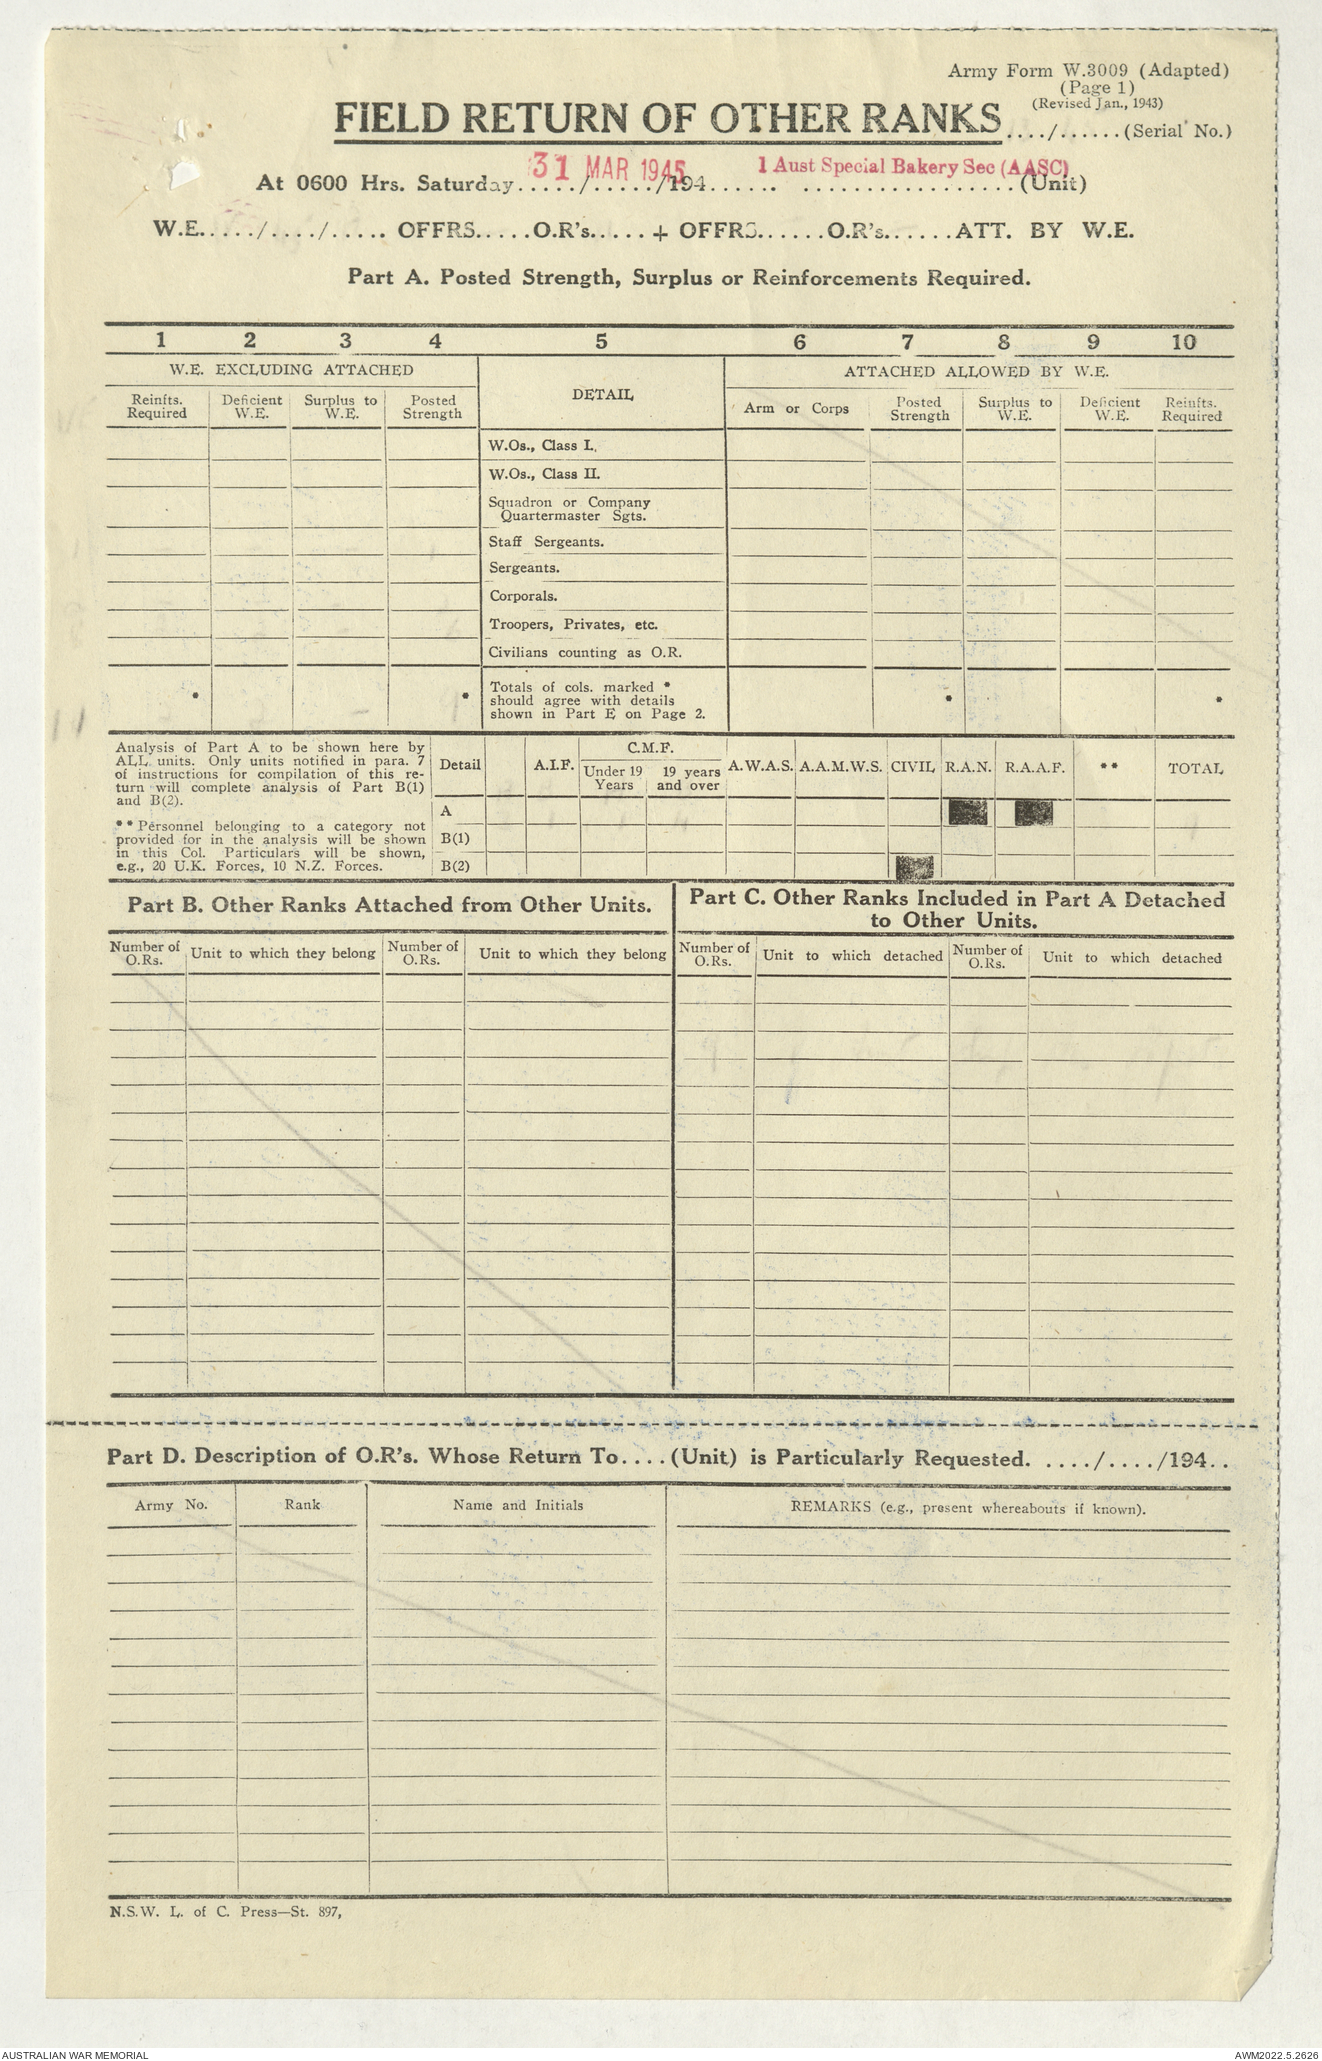 Army Form W.3009 (Adapted)
(Page 1)
(Revised Jan., 1943)
FIELD RETURN OF OTHER RANKS ..../......(Serial No.)
31 MAR 1945
1 Aust Special Bakery Sec (AASC)
At 0600 Hrs. Saturday....../....../194...... ..................(Unit)
W.E...../..../..... OFFRS.....O.R's..... + OFFRS......O.R's......ATT. BY W.E.
Part A. Posted Strength, Surplus or Reinforcements Required.
1 2 3 4 5 6 7 8 9 10
W.E. EXCLUDING ATTACHED
DETAIL
ATTACHED ALLOWED BY W.E.
Reinfts. Required
Deficient W.E.
Surplus to W.E.
Posted Strength
Arm or Corps
Posted Strength
Surplus to W.E.
Deficient W.E.
Reinfts. Required
W.Os., Class I.
W.Os., Class II.
Squadron or Company
Quartermaster Sgts.
Staff Sergeants.
Sergeants.
Corporals.
Troopers, Privates, etc.
Civilians counting as O.R.
* * * *
Totals of cols. marked *
should agree with details
shown in Part E on Page 2.
Analysis of Part A to be shown here by
ALL units. Only units notified in para. 7
of instructions for compilation of this re-
turn will complete analysis of Part B(1)
and B(2).
** Personnel belonging to a category not
provided for in the analysis will be shown
in this Col. Particulars will be shown,
e.g., 20 U.K. Forces, 10 N.Z. Forces.
Detail
A.I.F.
C.M.F.
Under 19 Years
19 years and over
A.W.A.S.
A.A.M.W.S.
CIVIL
R.A.N.
R.A.A.F.
**
TOTAL
A
B(1)
B(2)
Part B. Other Ranks Attached from Other Units.
Part C. Other Ranks Included in Part A Detached
to Other Units.
Number of O.Rs.
Unit to which they belong
Number of O.Rs.
Unit to which they belong
Number of O.Rs.
Unit to which detached
Number of O.Rs.
Unit to which detached
Part D. Description of O.R's. Whose Return To....(Unit) is Particularly Requested. ..../..../194..
Army No.
Rank
Name and Initials
REMARKS (e.g., present whereabouts if known).
N.S.W. L. of C. Press—St. 897,
AUSTRALIAN WAR MEMORIAL
AWM2022.5.2626